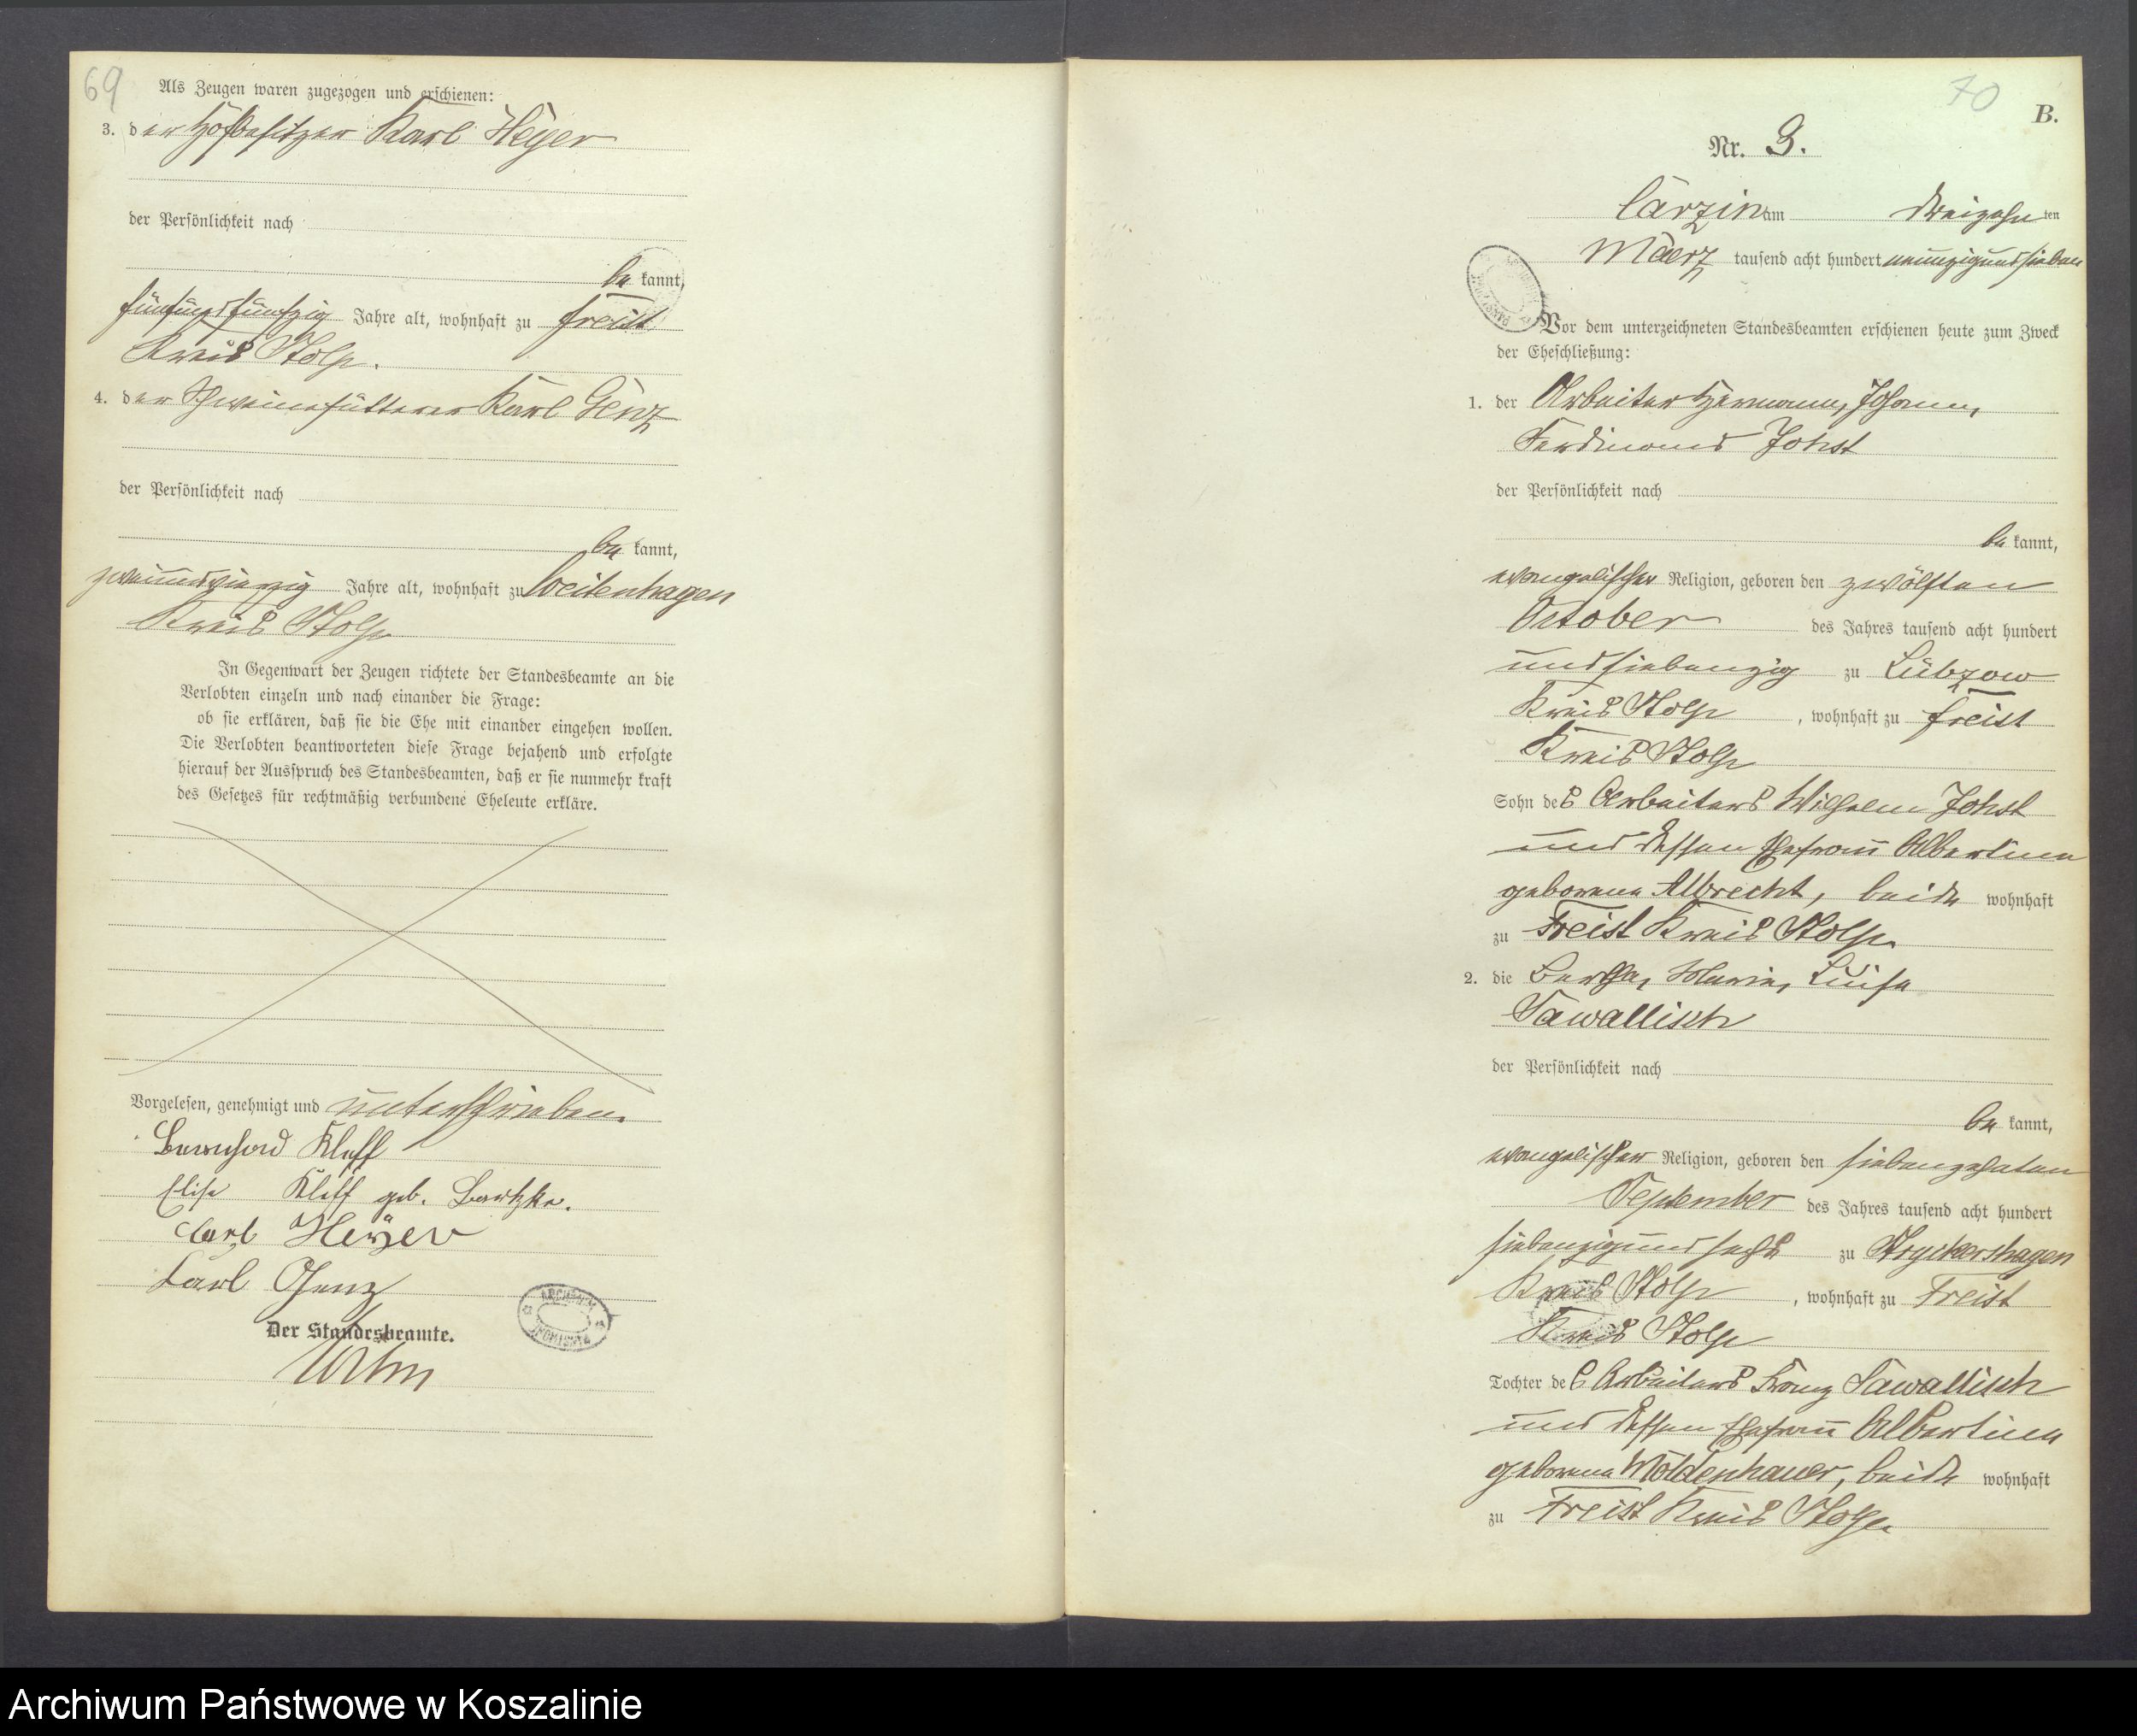 69
Als Zeugen waren zugezogen und erschienen:
3. der Hofbesitzer Karl Heyer
der Persönlichkeit nach
be kannt,
fünfundfünfzig Jahre alt, wohnhaft zu Freist
Kreis Stolp.
4. der Schweinefütterer Karl Genz
der Persönlichkeit nach
be kannt,
zweiundvierzig Jahre alt, wohnhaft zu Weitenhagen
Kreis Stolp
In Gegenwart der Zeugen richtete der Standesbeamte an die
Verlobten einzeln und nach einander die Frage:
ob sie erklären, daß sie die Ehe mit einander eingehen wollen.
Die Verlobten beantworteten diese Frage bejahend und erfolgte
hierauf der Ausspruch des Standesbeamten, daß er sie nunmehr kraft
des Gesetzes für rechtmäßig verbundene Eheleute erkläre.
Vorgelesen, genehmigt und unterschrieben.
Bernhard Kleff
Elise Kleff geb. Bartzke.
Carl Heÿer
Karl Genz
Der Standesbeamte.
70
B.
Nr. 3.
Carzin am dreizehn ten
Maerz tausend acht hundert neunzigundsieben
Vor dem unterzeichneten Standesbeamten erschienen heute zum Zweck
der Eheschließung:
1. der Arbeiter Hermann, Johann,
Ferdinand Johst
der Persönlichkeit nach
be kannt,
evangelischer Religion, geboren den zwölften
October des Jahres tausend acht hundert
undsiebenzig zu Lübzow
Kreis Stolp, wohnhaft zu Freist
Kreis Stolp
Sohn des Arbeiters Wilhelm Johst
und dessen Ehefrau Albertine
geborene Albrecht, beide wohnhaft
zu Freist Kreis Stolp.
2. die Bertha, Marie, Luise
Sawallisch
der Persönlichkeit nach
be kannt,
evangelischer Religion, geboren den siebenzehnten
September des Jahres tausend acht hundert
siebenzigundsechs zu Stryckershagen
Kreis Stolp, wohnhaft zu Freist
Kreis Stolp
Tochter des Arbeiters Franz Sawallisch
und dessen Ehefrau Albertine
geborene Moldenhauer, beide wohnhaft
zu Freist Kreis Stolp.
Archiwum Państwowe w Koszalinie